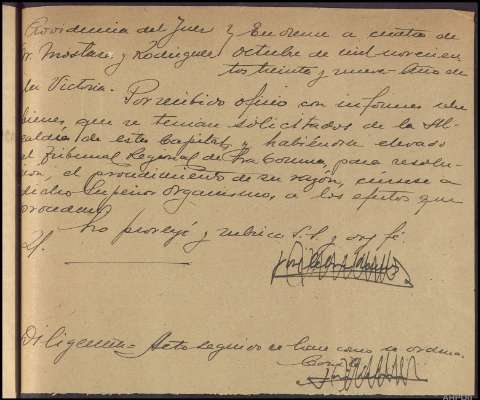 Providencia del Juez } En Orense a cuatro de
Sr. Mostaza y Rodriguez octubre de mil novecien
tos treinta y nueve. Año de
la Victoria.
Por recibido oficio con informes sobre
bienes, que se tenian solicitados de la Al-
caldía de esta Capital, y habiéndose elevado
al Tribunal Regional de La Coruña, para resolu-
ción, el procedimiento de su razón, cúrsese a
dicho Superior Organismo, a los efectos que
procedan.
Lo proveyó y rubrica S.S. y doy fé.
Diligencia = Acto seguido se hace como se ordena.
Doy fé
AHPOU